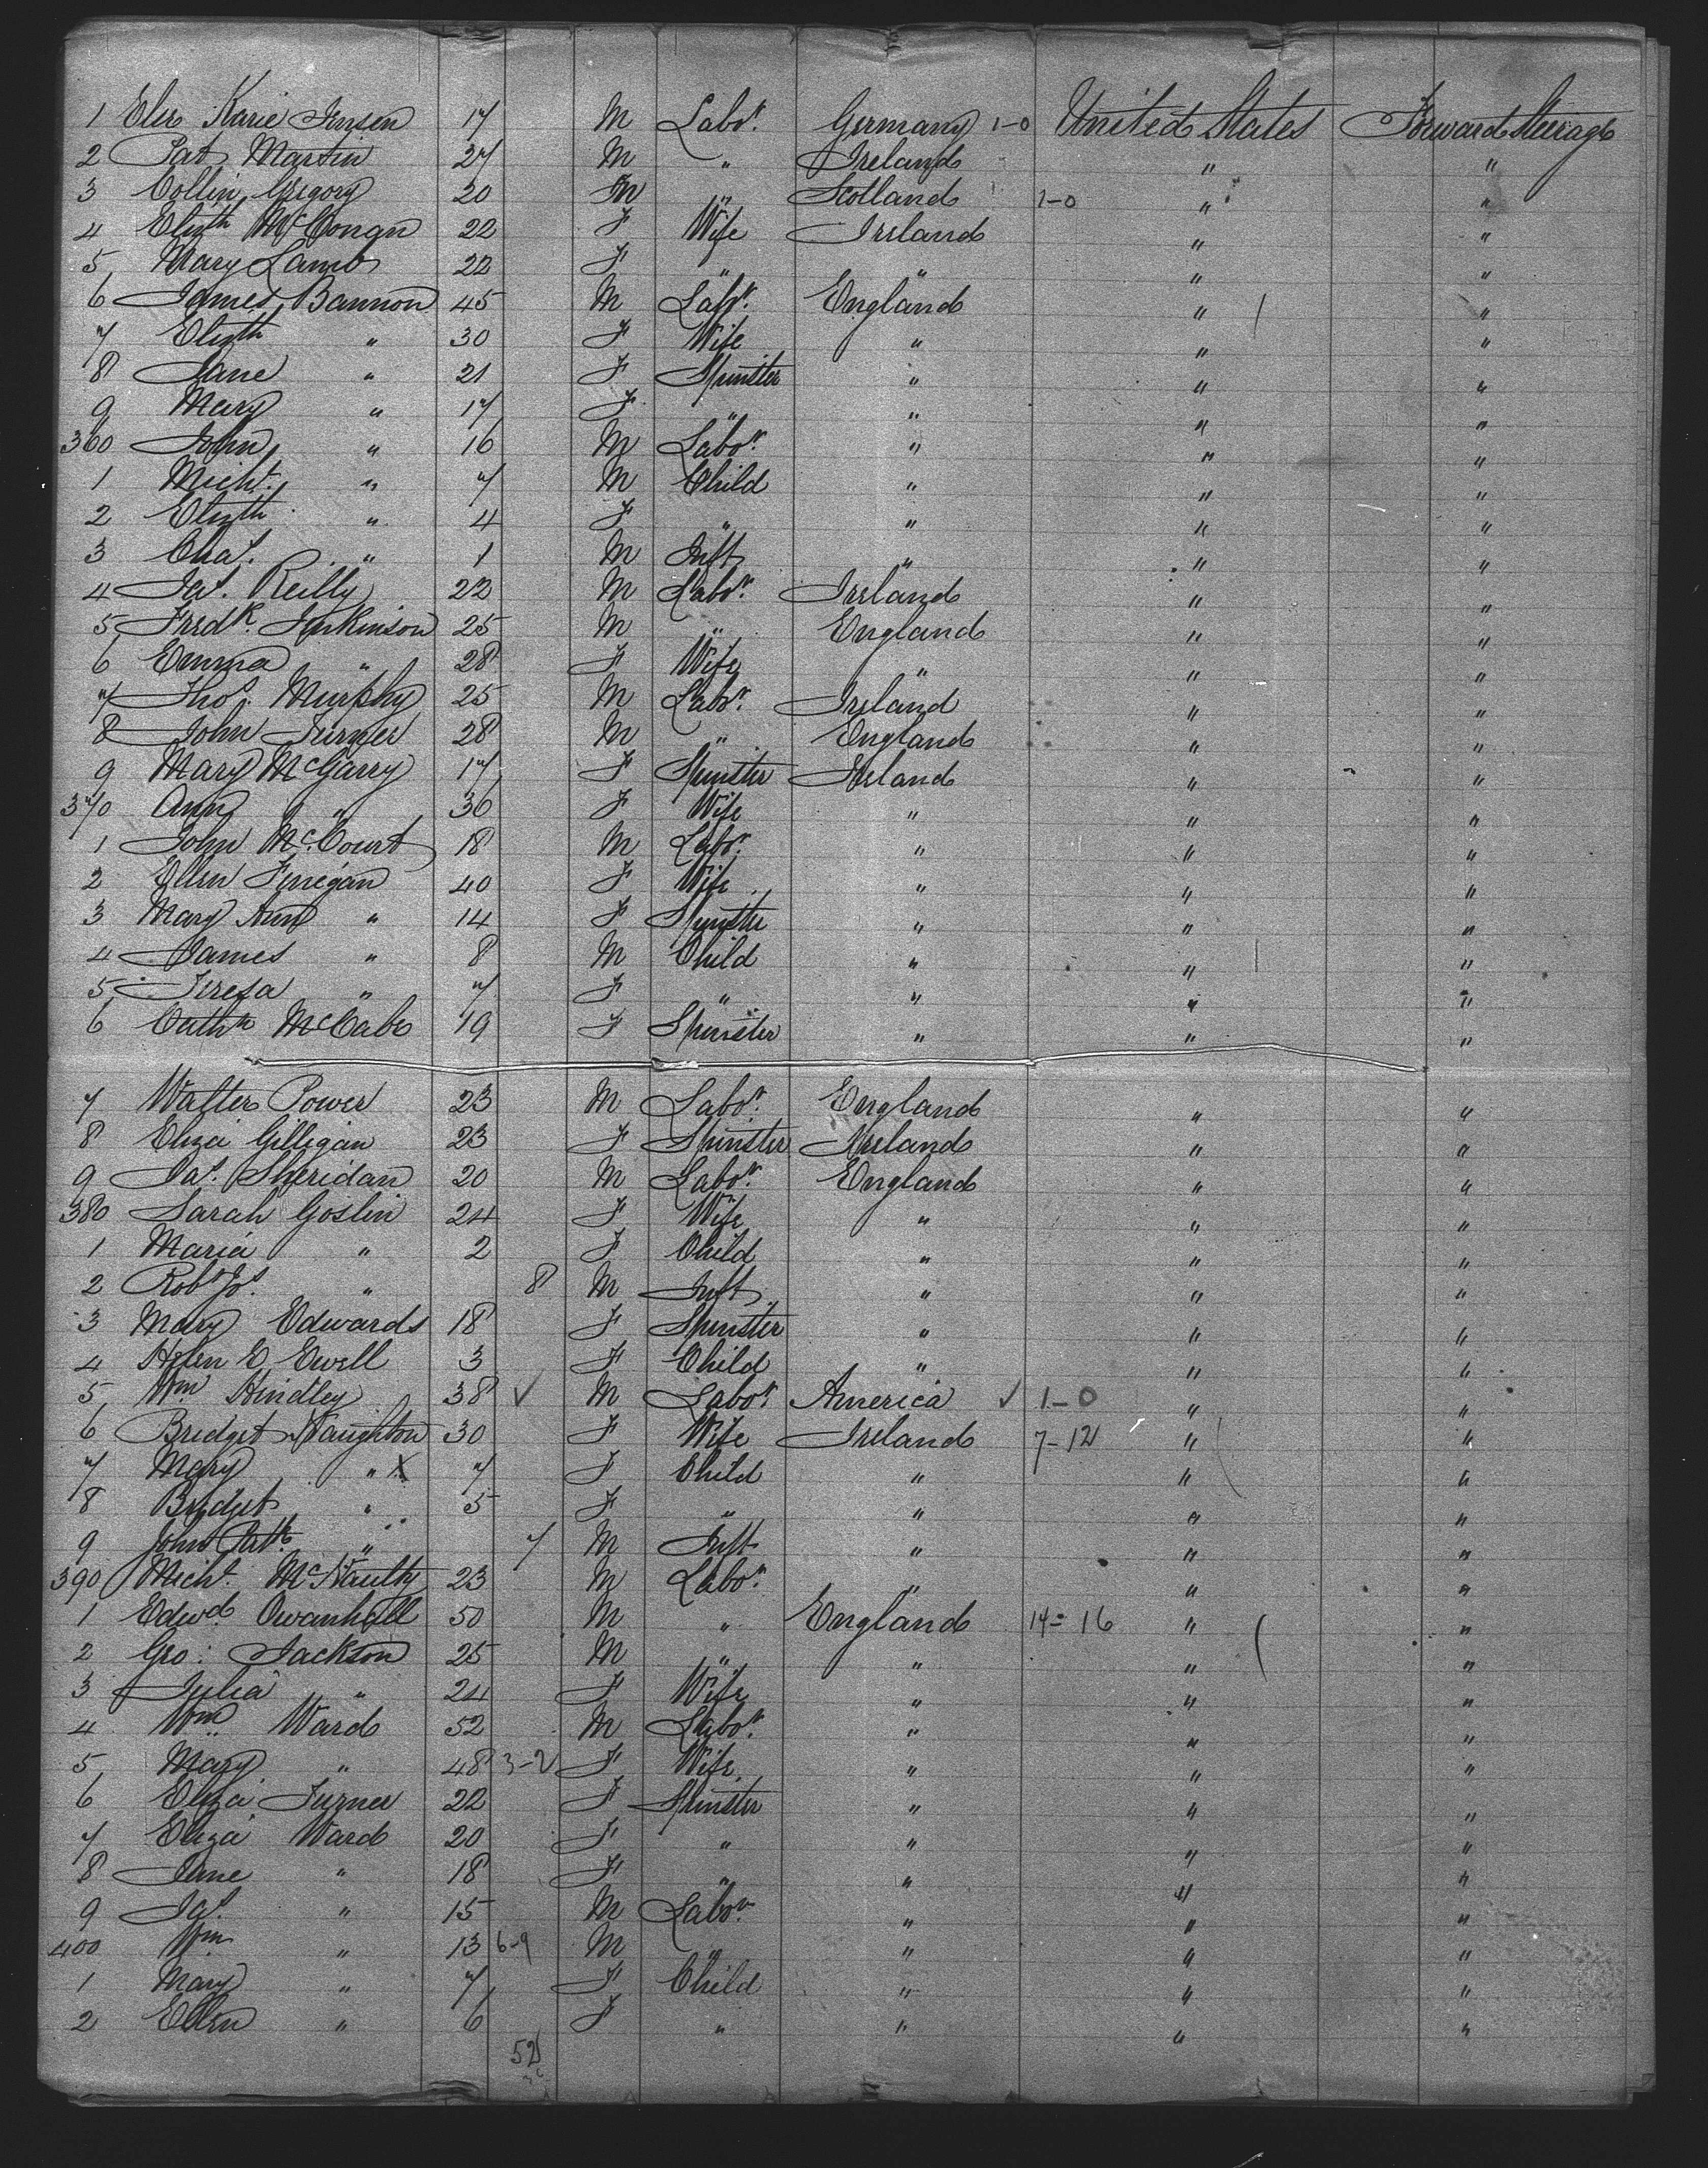 1 Elis Karie Jensen 17 M Labor. Germany 1-0 United States Forward Steerage
2 Pat Martin 27 M " Ireland " "
3 Collin Gregory 20 M " Scotland 1-0 " "
4 Elizth McCongn 22 F Wife Ireland " "
5 Mary Lamb 22 F " " " "
6 James Bannon 45 M Labor. England " "
7 Elizth " 30 F Wife " " "
8 Jane " 21 F Spinster " " "
9 Mary " 17 F " " " "
360 John " 16 M Labor. " " "
1 Michl. " 7 M Child " " "
2 Elizth " 4 F " " " "
3 Chas. " 1 M Inft " " "
4 Jas. Reilly 22 M Labor. Ireland " "
5 Fredk. Jenkinson 25 M " England " "
6 Emma " 28 F Wife " " "
7 Thos. Murphy 25 M Labor. Ireland " "
8 John Turner 28 M " England " "
9 Mary McGarry 17 F Spinster Ireland " "
370 Ann " 36 F Wife " " "
1 John McCourt 18 M Labor. " " "
2 Ellen Finegan 40 F Wife " " "
3 Mary Ann " 14 F Spinster " " "
4 James " 8 M Child " " "
5 Teresa " 7 F " " " "
6 Cathn McCabe 19 F Spinster " " "
7 Walter Power 23 M Labor. England " "
8 Eliza Gilligan 23 F Spinster Ireland " "
9 Jas. Sheridan 20 M Labor. England " "
380 Sarah Goslin 24 F Wife " " "
1 Maria " 2 F Child " " "
2 Robt Jos. " 8 M Inft " " "
3 Mary Edwards 18 F Spinster " " "
4 Helen E Ewell 3 F Child " " "
5 Wm Hindley 38 ✓ M Labor. America ✓ 1-0 " "
6 Bridget Naughton 30 F Wife Ireland 7-12 " "
7 Mary " X 7 F Child " " "
8 Bridget " 5 F " " " "
9 John Patk. " 7 M Inft " " "
390 Michl. McNaulty 23 M Labor. " " "
1 Edwd. Owanhall 50 M " England 14-16 " "
2 Geo: Jackson 25 M " " " "
3 Julia " 24 F Wife " " "
4 Wm. Ward 52 M Labor. " " "
5 Mary " 48 3-2 F Wife " " "
6 Eliza Turner 22 F Spinster " " "
7 Eliza Ward 20 F " " " "
8 Jane " 18 F " " " "
9 Jas. " 15 M Labor. " " "
400 Wm. " 13 6-9 M " " " "
1 Mary " 7 F Child " " "
2 Ellen " 6 F " " " "
52